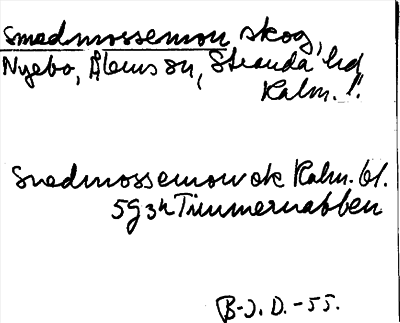 Smedmossemon skog,
Nyebo, Ålems sn, Stranda hd
Kalm. l.
Smedmossemon ek Kalm. bl.
5G3h Timmernabben
B-J. D. -55.